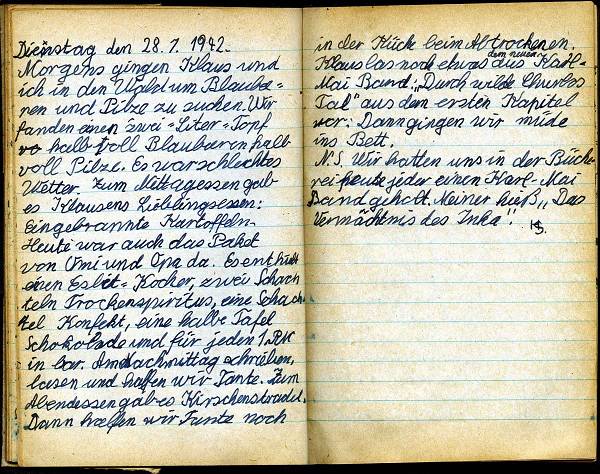 Dienstag den 28.7.1942.
Morgens gingen Klaus und
ich in den Wald um Blaube=
ren und Pilze zu suchen. Wir
fanden einen zwei-Liter-Topf
halb voll Blaubeeren halb
voll Pilze. Es war schlechtes
Wetter. Zum Mittagessen gab
es Klausens Lieblingsessen:
Eingebrannte Kartoffeln.
Heute war auch das Paket
von Omi und Opa da. Es enthielt
einen Esbit-Kocher, zwei Schach
teln Trockenspiritus, eine Schach=
tel Konfekt, eine halbe Tafel
Schokolade und für jeden 1 RM
in bar. Am Nachmittag schrieben,
lasen und halfen wir Tante. Zum
Abendessen gab es Kirschenstrudel.
Dann halfen wir Tante noch
in der Küche beim Abtrocknen.
Klaus las noch etwas aus dem neuen Karl-
Mai Band: „Durch wilde
Tal" aus dem ersten Kapitel
vor. Dann gingen wir müde
ins Bett.
N.S. Wir hatten uns in der Büche
rei heute jeder einen Karl-Mai
Band geholt. Meiner hieß „Das
Vermächtnis des Inka".